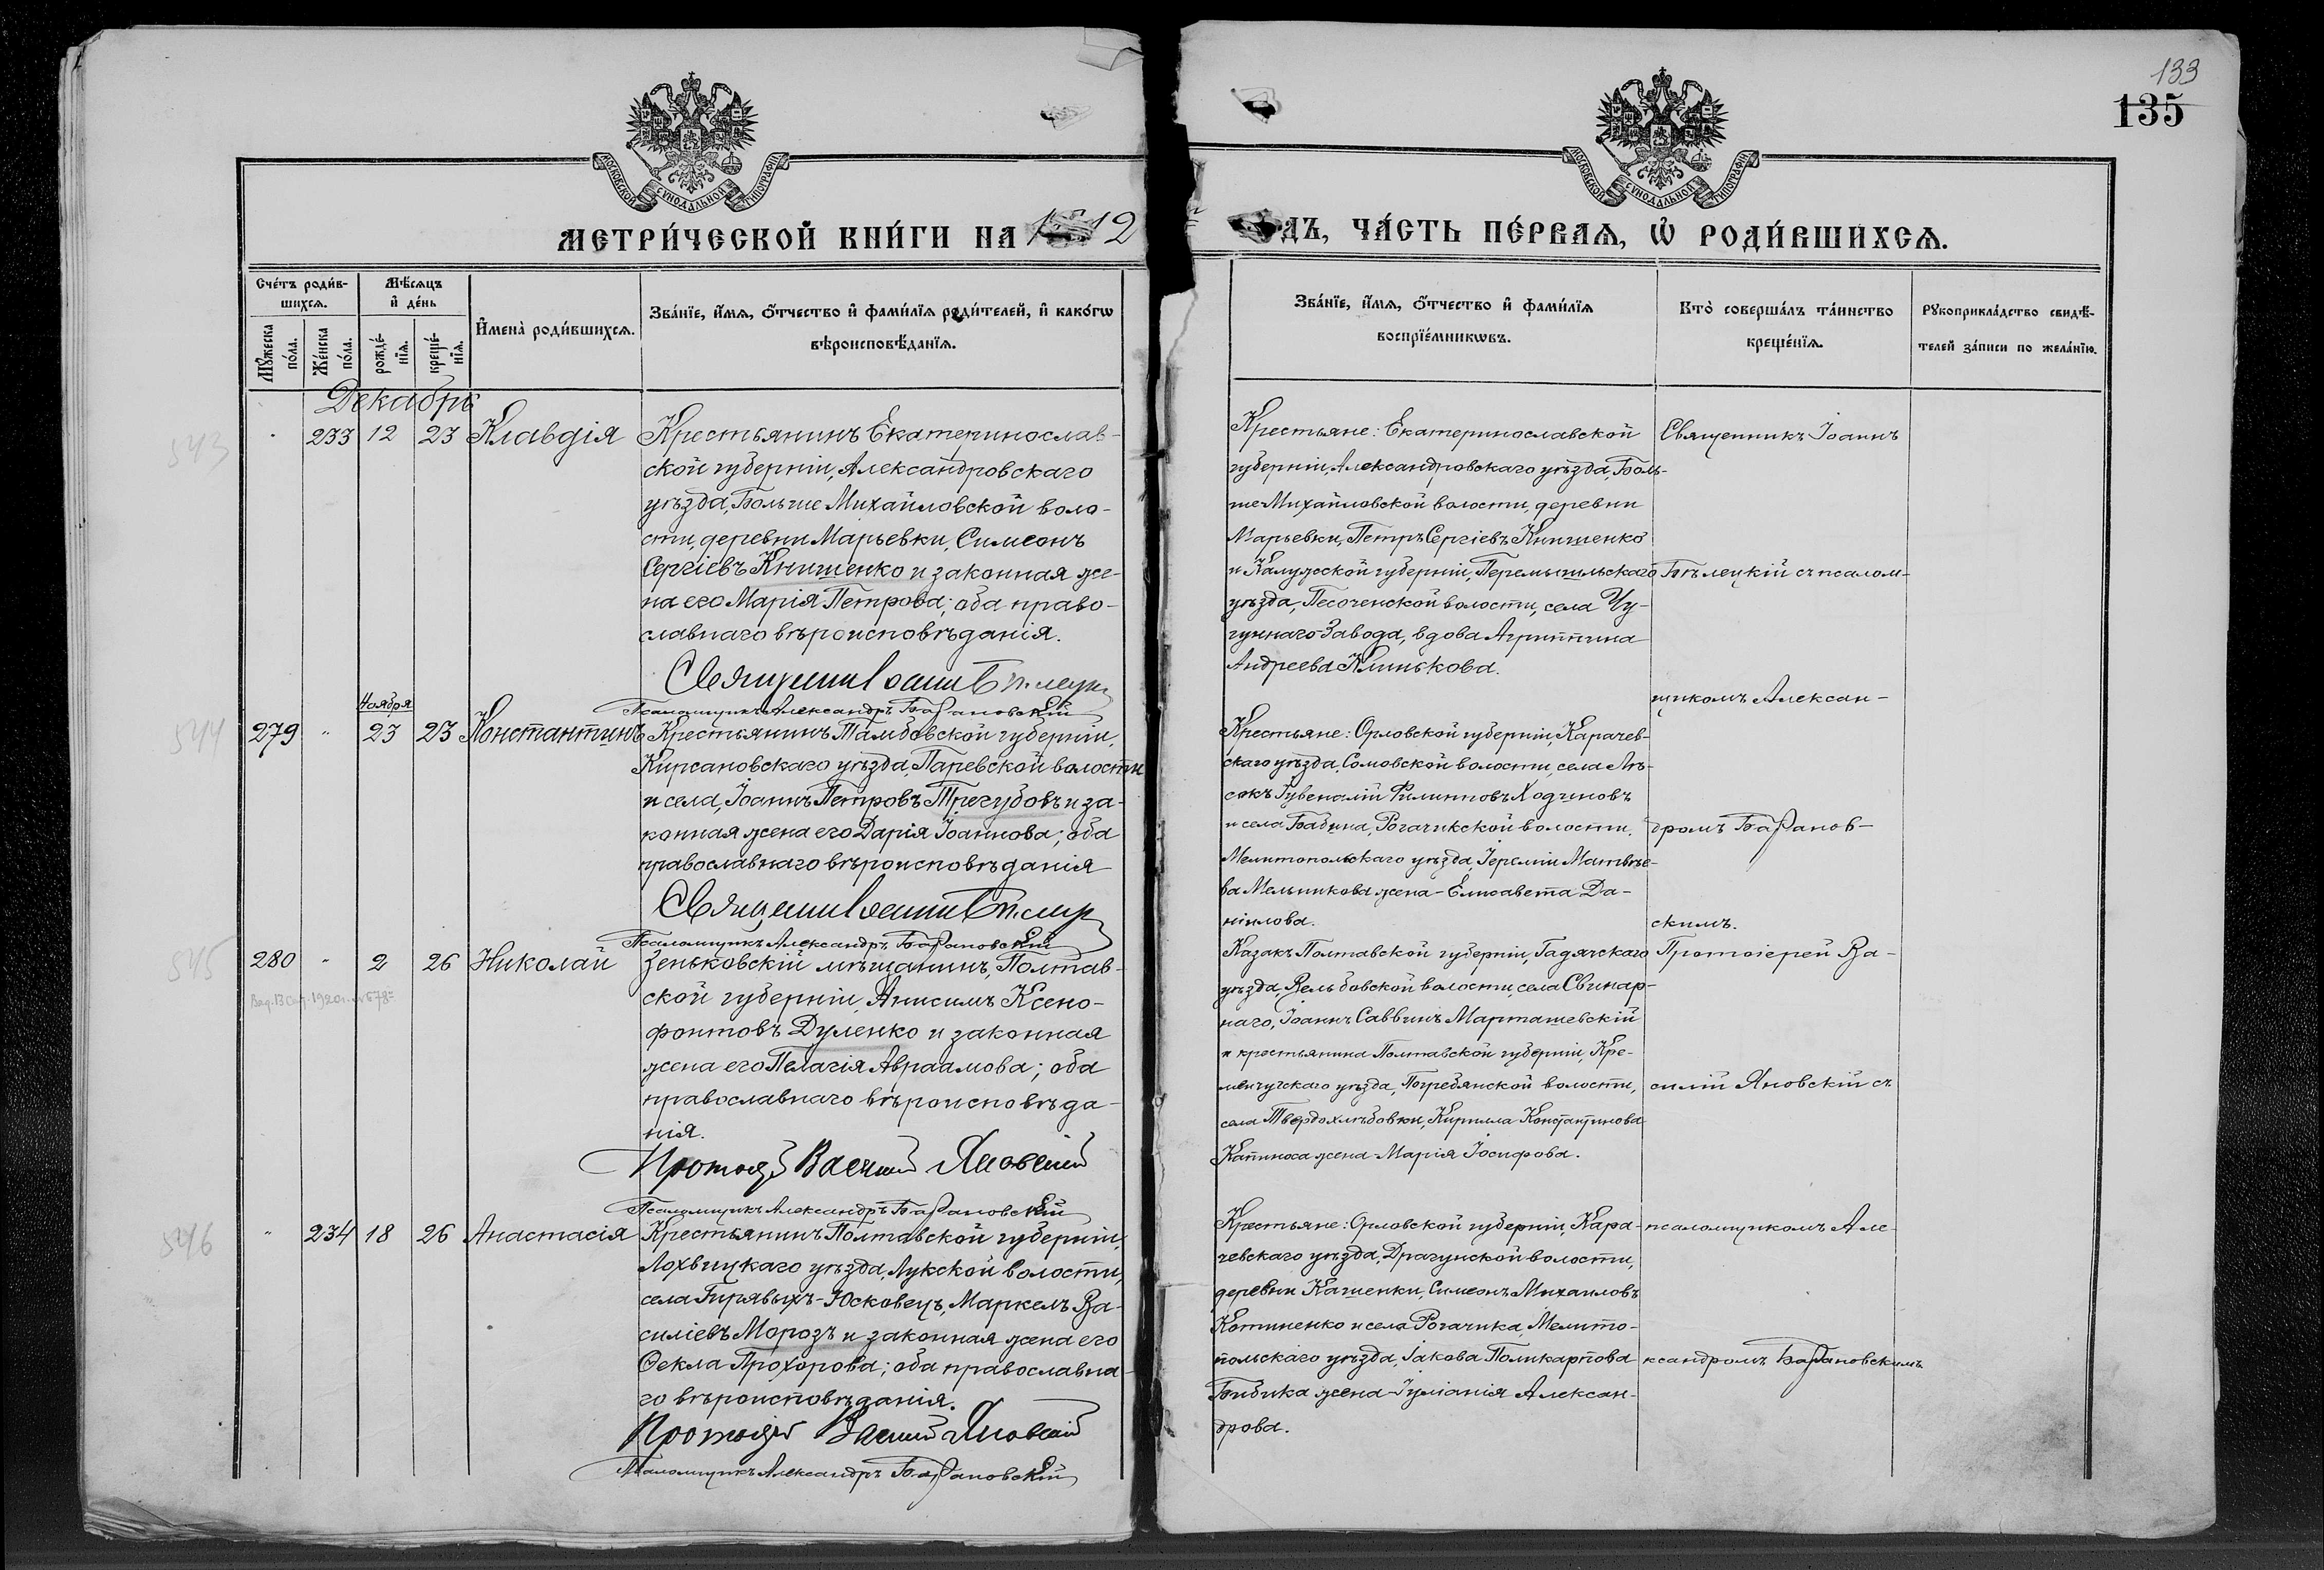 133
135
МОСКОВСКОЙ СѴНОДАЛЬНОЙ ТИПОГРАФІИ
МОСКОВСКОЙ СѴНОДАЛЬНОЙ ТИПОГРАФІИ
МЕТРИ́ЧЕСКОЙ КНИ́ГИ НА 1912
ДЪ, ЧА́СТЬ ПЕ́РВАѦ, Ѡ҆ РОДИ́ВШИХСѦ.
Сче́тъ роди́в-
шихсѧ.
Мѣ́сѧцъ
и҆ де́нь
Мꙋ́жеска
по́ла.
Же́нска
по́ла.
рожде́-
нїѧ.
креще́-
нїѧ.
И҆мена̀ роди́вшихсѧ.
Зва́нїе, и҆́мѧ, ѻ҆́тчество и҆ фами́лїѧ роди́телей, и҆ како́гѡ
вѣроисповѣ́данїѧ.
Зва́нїе, и҆́мѧ, ѻ҆́тчество и҆ фами́лїѧ
воспрїе́мникѡвъ.
Кто̀ соверша́лъ та́инство
креще́нїѧ.
Рꙋкоприкла́дство свидѣ́-
телей за́писи по жела́нїю.
Декабрь
543
233 12 23 Клавдія
Крестьянинъ Екатеринослав-
ской губерніи, Александровскаго
уѣзда, Больше Михайловской воло-
сти, деревни Марьевки, Симеонъ
Сергіевъ Книшенко и законная же-
на его Марія Петрова; оба право-
славнаго вѣроисповѣданія.
Священникъ Іоаннъ Бѣлецкій
Псаломщикъ Александръ Барановскій
Крестьяне: Екатеринославской
губерніи, Александровскаго уѣзда, Боль-
ше Михайловской волости, деревни
Марьевки, Петръ Сергіевъ Книшенко
и Калужской губерніи, Перемышльскаго
уѣзда, Песоченской волости, села Чу-
гуннаго-Завода, вдова Агриппина
Андреева Клинькова.
Священникъ Іоаннъ
Бѣлецкій съ псалом-
щикомъ Алексан-
544
Ноября
279 " 23 23 Константинъ
Крестьянинъ Тамбовской губерніи,
Кирсановскаго уѣзда, Паревской волости
и села, Іоаннъ Петровъ Трегубовъ и за-
конная жена его Дарія Іоаннова; оба
православнаго вѣроисповѣданія
Священникъ Іоаннъ Бѣлецкій
Псаломщикъ Александръ Барановскій
Крестьяне: Орловской губерніи, Карачев-
скаго уѣзда, Сомовской волости, села Лѣ-
сокъ Іувеналій Филипповъ Ходчиновъ
и села Бабина, Рогачикской волости,
Мелитопольскаго уѣзда, Іереміи Матвѣе-
ва Мельникова жена - Елисавета Да-
ніилова.
дромъ Баранов-
скимъ.
545
280 " 2 26 Николай
Зеньковскій мѣщанинъ, Полтав-
ской губерніи, Анисимъ Ксено-
фонтовъ Дуленко и законная
жена его Пелагія Авраамова; оба
православнаго вѣроисповѣда-
нія.
Протоіерей Василій Яновскій
Псаломщикъ Александръ Барановскій
Казакъ Полтавской губерніи, Гадячскаго
уѣзда, Вельбовской волости, села Свинар-
наго, Іоаннъ Саввинъ Марташевскій
и крестьянина Полтавской губерніи, Кре-
менчугскаго уѣзда, Погребянской волости,
села Твердохлѣбовки, Кирилла Константинова
Капиноса жена-Марія Іосифова.
Протоіерей Ва-
силій Яновскій съ
546
" 234 18 26 Анастасія
Крестьянинъ Полтавской губерніи,
Лохвицкаго уѣзда, Лукской волости,
села Гирявыхъ-Юсковецъ, Маркелъ Ва-
силіевъ Морозъ и законная жена его
Ѳекла Прохорова; оба православна-
го вѣроисповѣданія.
Протоіерей Василій Яновскій
Псаломщикъ Александръ Барановскій
Крестьяне: Орловской губерніи, Кара-
чевскаго уѣзда, Драгунской волости,
деревни Кашенки, Симеонъ Михаиловъ
Котиненко и села Рогачика, Мелито-
польскаго уѣзда, Іакова Поликарпова
Бибика жена-Іуліанія Алексан-
дрова.
псаломщикомъ Але-
ксандромъ Барановскимъ